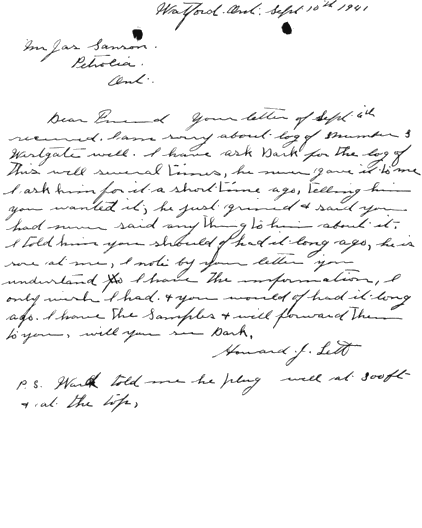 Watford. Ont. Sept 10th 1941
Mr Jas Sanson.
Petrolia.
Ont.
Dear Friend Your letter of Sept 6th
received. I am sorry about log of number 3
Westgate well. I have ask Dark for the log of
this well several times, he never gave it to me
I ask him for it a short time ago, telling him
you wanted it, he just grined & said you
had never said any thing to him about it.
I told him you should of had it long ago, he is
sore at me, I note by your letter you
understand I have the information, I
only wish I had. & you would of had it long
ago. I have the samples & will forward them
to you, will you see Dark,
Howard J. Lett
P.S. told me he plug well at 300ft
& at the top,